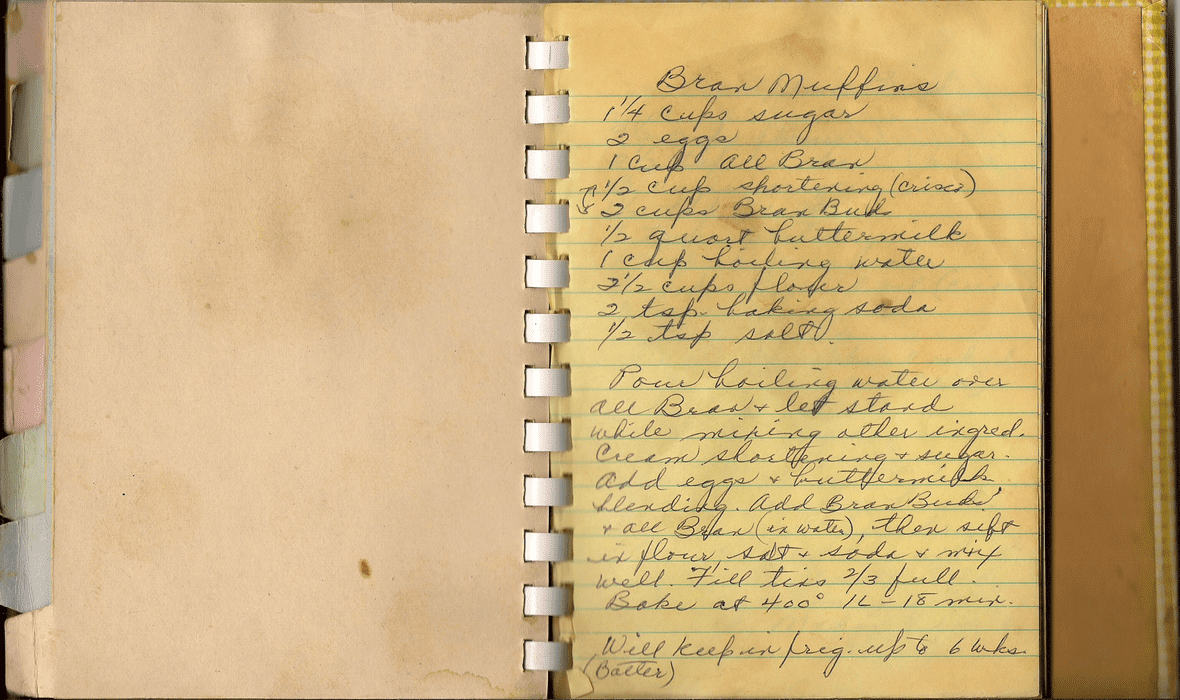 Bran Muffins
1 1/4 cups sugar
2 eggs
1 cup All Bran
1/2 cup shortening (crisco)
2 cups Bran Buds
1/2 quart buttermilk
1 cup boiling water
2 1/2 cups flour
2 tsp. baking soda
1/2 tsp salt.
Pour boiling water over
all Bran + let stand
while mixing other ingred.
Cream shortening + sugar.
Add eggs + buttermilk
blending. Add Bran Buds
+ all Bran (in water), then sift
in flour, salt + soda + mix
well. Fill tins 2/3 full.
Bake at 400° - 18 min.
Will keep in frig. up to 6 wks.
(Batter)